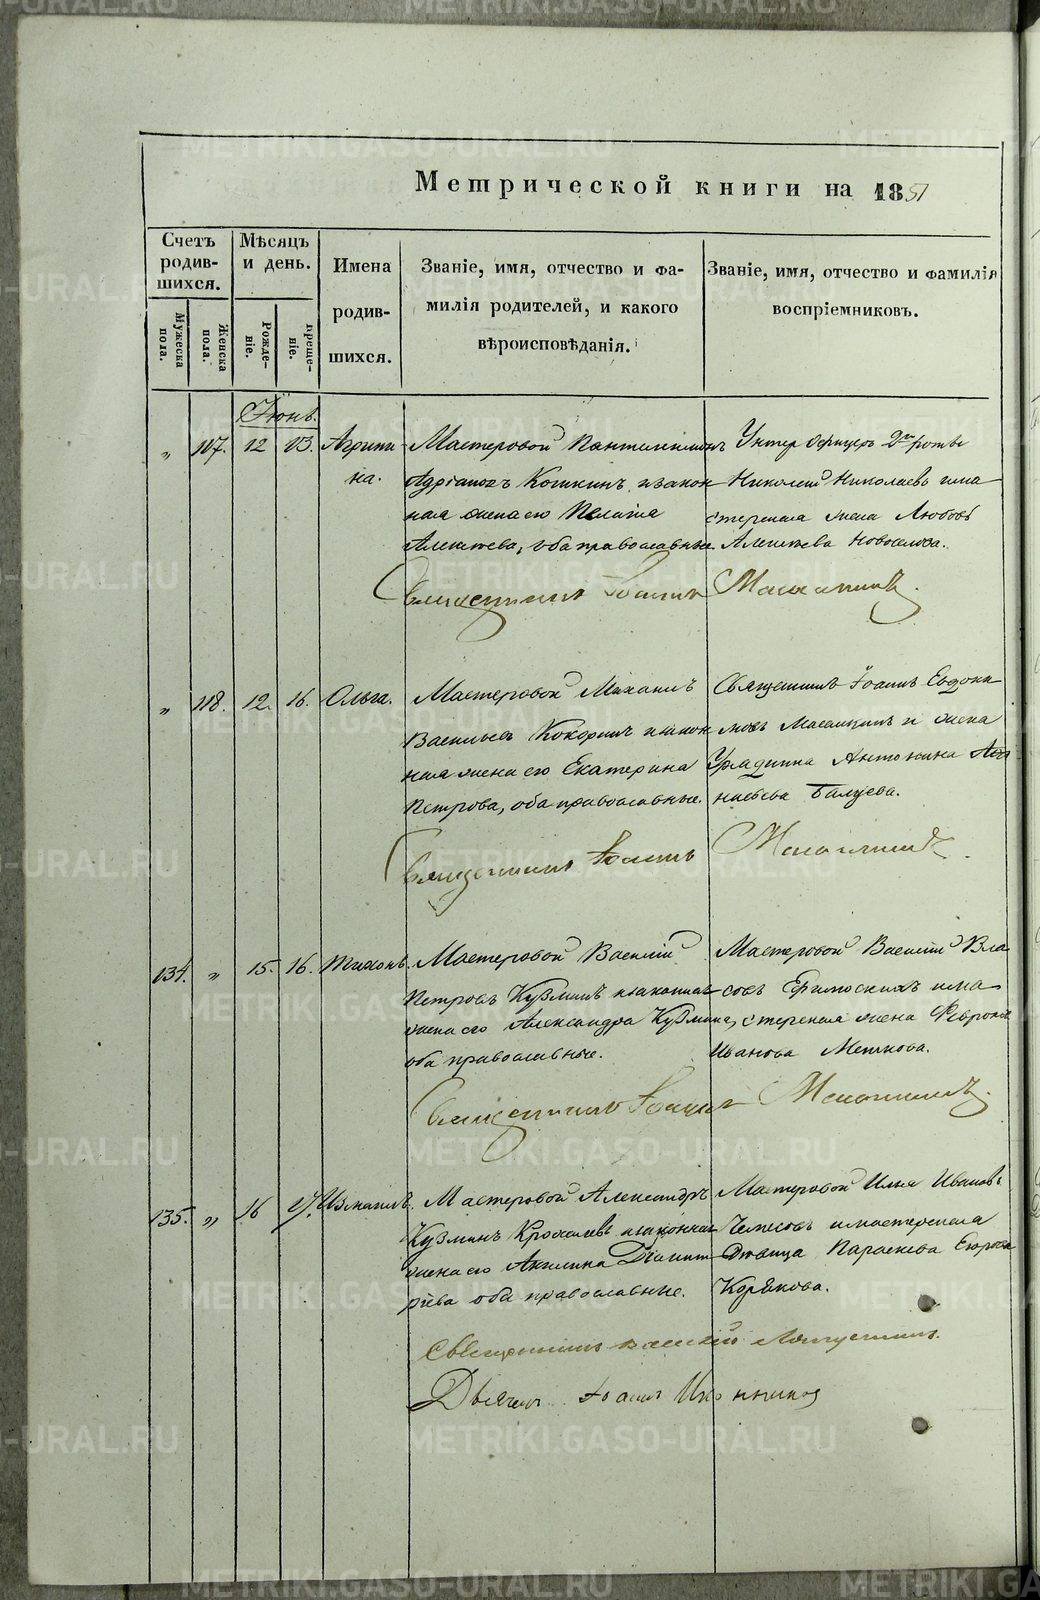 Метрической книги на 1851
Счетъ родившихся.
Мужеска пола.
Женска пола.
Мѣсяцъ и день.
Рожденіе.
крещеніе.
Имена родившихся.
Званіе, имя, отчество и фамилія родителей, и какого вѣроисповѣданія.
Званіе, имя, отчество и фамилія воспріемниковъ.
Іюнь.
„ 117. 12 13. Агрипина.
Мастеровой Пантелеимонъ
Адріановъ Кошкинъ изакон
ная жена его Пелагія
Алексѣева, оба православные
Унтеръ Офицеръ 2й роты
Николай Николаевъ има
стерская жена Любовь
Алексѣева Новоселова.
Священникъ Іоаннъ
„ 118. 12. 16. Ольга.
Мастеровой Михаилъ
Васильевъ Кокоринъ изакон
ная жена его Екатерина
Петрова, оба православные.
Священникъ Іоаннъ Евдоки
мовъ и жена
Урядника Антонина Афа
насьева
Священникъ Іоаннъ
134. „ 15. 16. Тихонъ.
Мастеровой Василій
Петровъ Кузминъ изаконная
жена его Александра Кузмина,
оба православные.
Мастеровой Василій Вла
совъ има
стерская жена Феврон
Иванова
Священникъ Іоаннъ
135. „ 16 17. Измаилъ.
Мастеровой Александръ
Кузминъ изаконная
жена его Акилина Димит
ріева оба православные.
Мастеровой Илья Ивановъ
имастерская
дѣвица Параскева Егорова
Корякова.
Священникъ Василій
Дьячекъ Іоаннъ Иконниковъ
METRIKI.GASO-URAL.RU